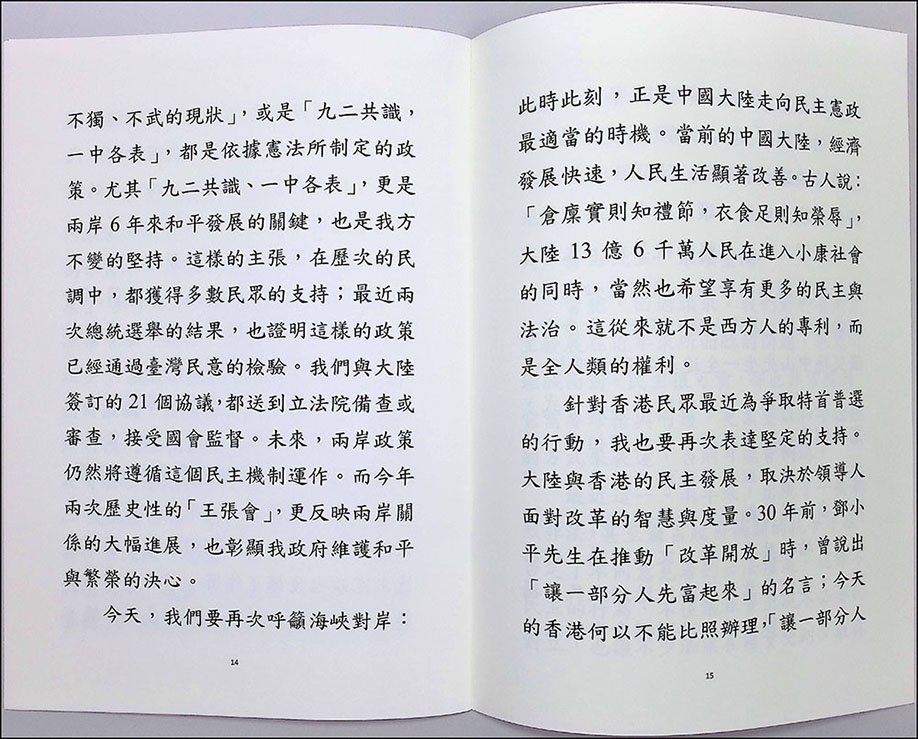 不獨、不武的現狀」，或是「九二共識，
一中各表」，都是依據憲法所制定的政
策。尤其「九二共識、一中各表」，更是
兩岸 6 年來和平發展的關鍵，也是我方
不變的堅持。這樣的主張，在歷次的民
調中，都獲得多數民眾的支持；最近兩
次總統選舉的結果，也證明這樣的政策
已經通過臺灣民意的檢驗。我們與大陸
簽訂的 21 個協議，都送到立法院備查或
審查，接受國會監督。未來，兩岸政策
仍然將遵循這個民主機制運作。而今年
兩次歷史性的「王張會」，更反映兩岸關
係的大幅進展，也彰顯我政府維護和平
與繁榮的決心。
今天，我們要再次呼籲海峽對岸：
14
此時此刻，正是中國大陸走向民主憲政
最適當的時機。當前的中國大陸，經濟
發展快速，人民生活顯著改善。古人說：
「倉廩實則知禮節，衣食足則知榮辱」，
大陸 13 億 6 千萬人民在進入小康社會
的同時，當然也希望享有更多的民主與
法治。這從來就不是西方人的專利，而
是全人類的權利。
針對香港民眾最近為爭取特首普選
的行動，我也要再次表達堅定的支持。
大陸與香港的民主發展，取決於領導人
面對改革的智慧與度量。30 年前，鄧小
平先生在推動「改革開放」時，曾說出
「讓一部分人先富起來」的名言；今天
的香港何以不能比照辦理，「讓一部分人
15